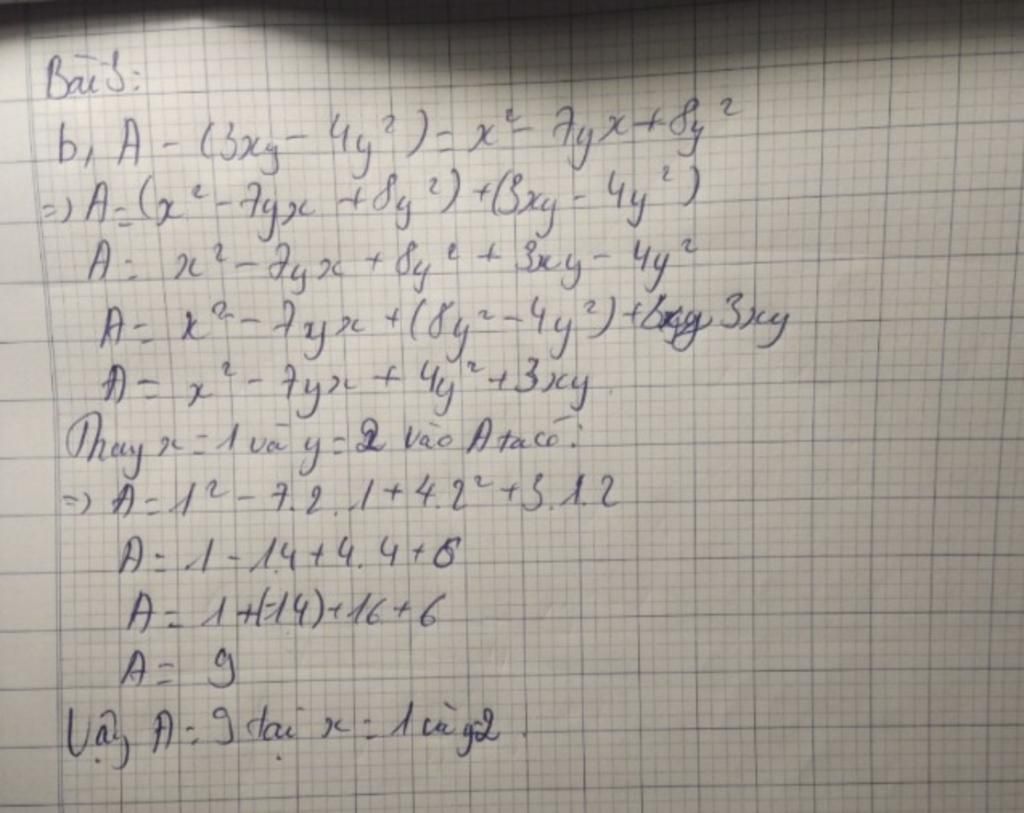 Bài 3:
b, A - (3xy - 4y²) = x² - 7yx + 8y²
=> A = (x² - 7yx + 8y²) + (3xy - 4y²)
A = x² - 7yx + 8y² + 3xy - 4y²
A = x² - 7yx + (8y² - 4y²) + 3xy
A = x² - 7yx + 4y² + 3xy
Thay x = 1 và y = 2 vào A ta có:
=> A = 1² - 7.2.1 + 4.2² + 3.1.2
A = 1 - 14 + 4.4 + 6
A = 1 + (-14) + 16 + 6
A = 9
Vậy A = 9 tại x = 1 và y=2